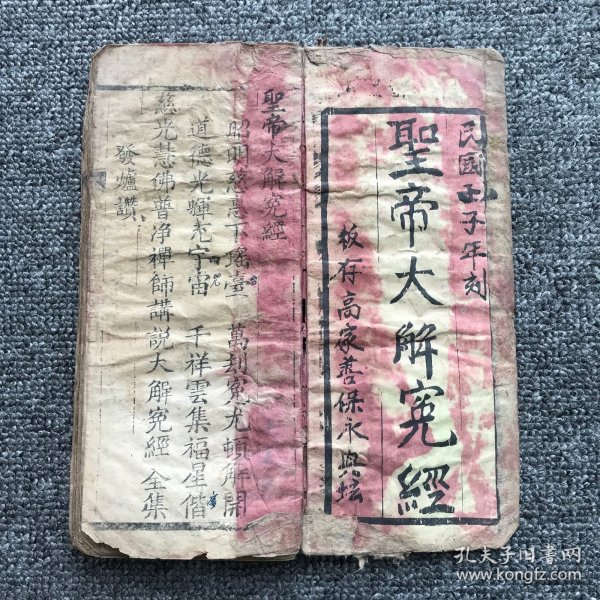 民國子年刻
聖帝大解冤經
板存高家善保永興坛
聖帝大解冤經
昭明慈惠下瑤臺 萬劫冤尤頓解開
道德光輝充宇宙 千祥雲集福星偕
慈光慧佛普淨禪師講説大解冤經全集
發爐讚
孔夫子旧書网
www.kongfz.com